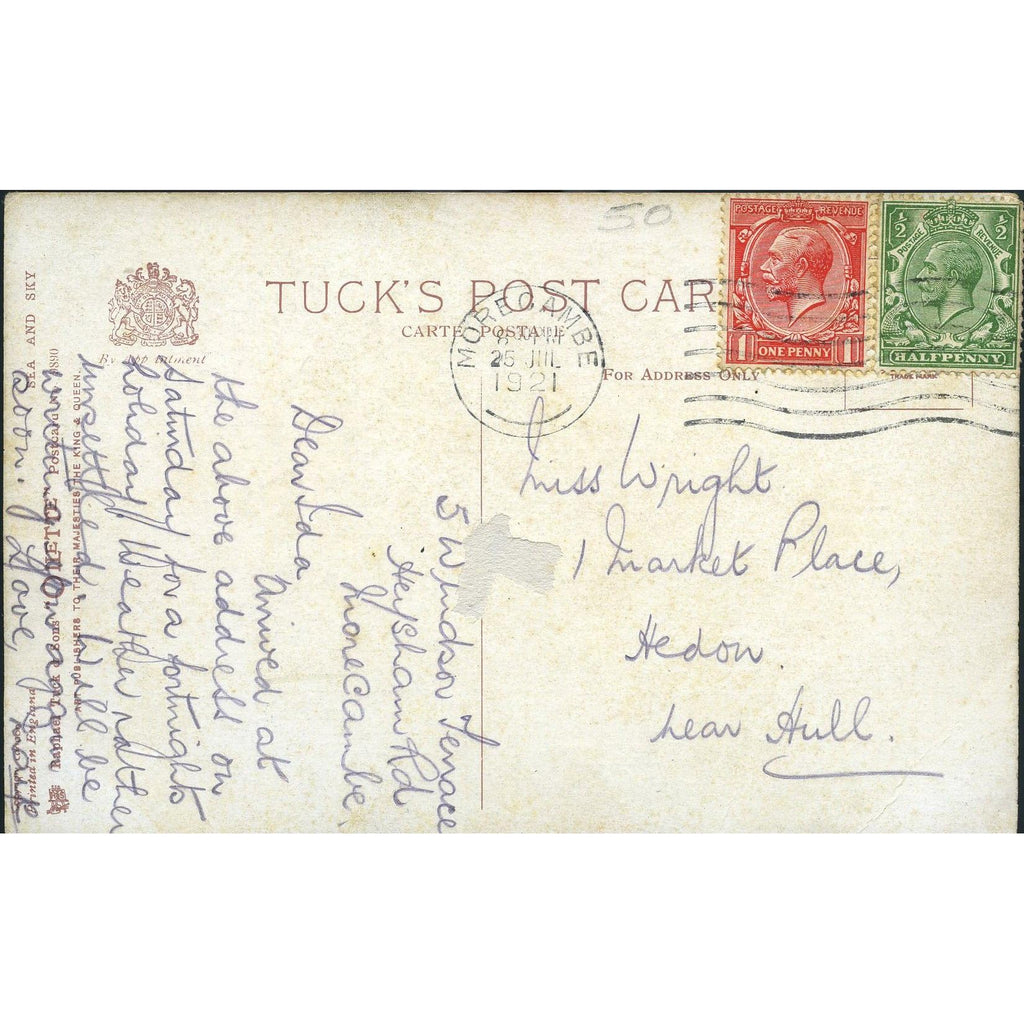 50
POSTAGE REVENUE
1 ONE PENNY 1
½ ½
POSTAGE REVENUE
HALFPENNY
TRADE MARK
TUCK'S POST CAR
CARTE POSTALE
FOR ADDRESS ONLY
MORECAMBE
25 JUL
1921
By Appointment
Miss Wright
1 Market Place,
Hedon
near Hull.
5 Windsor Terrace
Heysham Rd
Morecambe,
Dear Ida
Arrived at
the above address on
Saturday for a fortnights
holiday. Weather rather
unsettled. Will be
writing you
soon. Love,
ART PUBLISHERS TO THEIR MAJESTIES THE KING & QUEEN.
Raphael Tuck & Sons' "OILETTE" Postcard 1890
SEA AND SKY
Printed in England